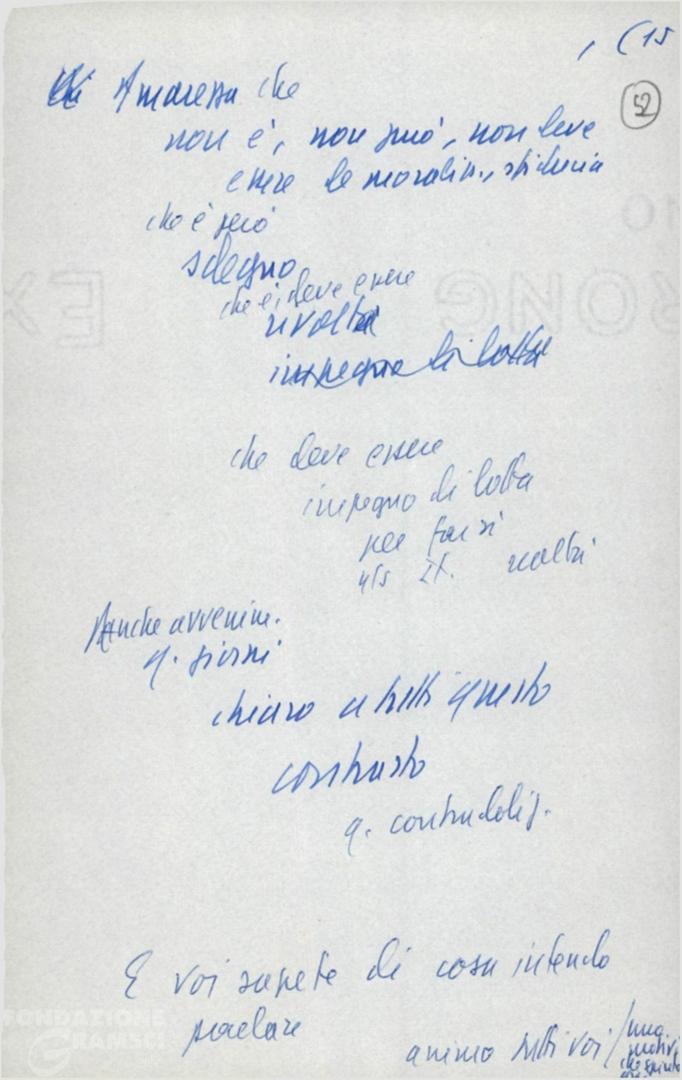 , (15
52
Amarezza che
non è, non può, non deve
essere demoralizz., sfiducia
che è però
sdegno
che è, deve essere
rivolta
impegno di lotta
che deve essere
impegno di lotta
per far sì
realtà
Anche avvenim.
q. giorni
chiaro a tutti questo
contrasto
q. contraddiz.
E voi sapete di cosa intendo
parlare
animo tutti voi /
FONDAZIONE
GRAMSCI